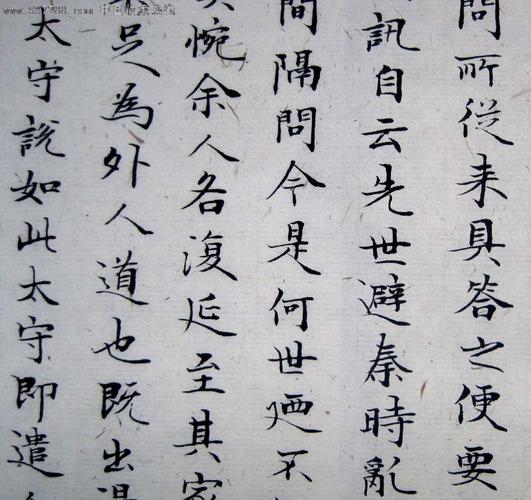 問所從来具答之便要
訊自云先世避秦時亂
間隔問今是何世廼不
惋余人各復延至其家
足為外人道也既出
太守說如此太守即遣